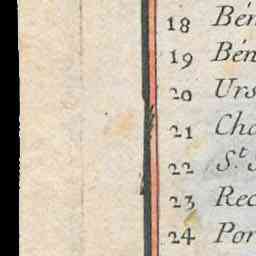 18 Bén
19 Bén
20 Urs
21 Cha
22 S.t S
23 Rec
24 Por